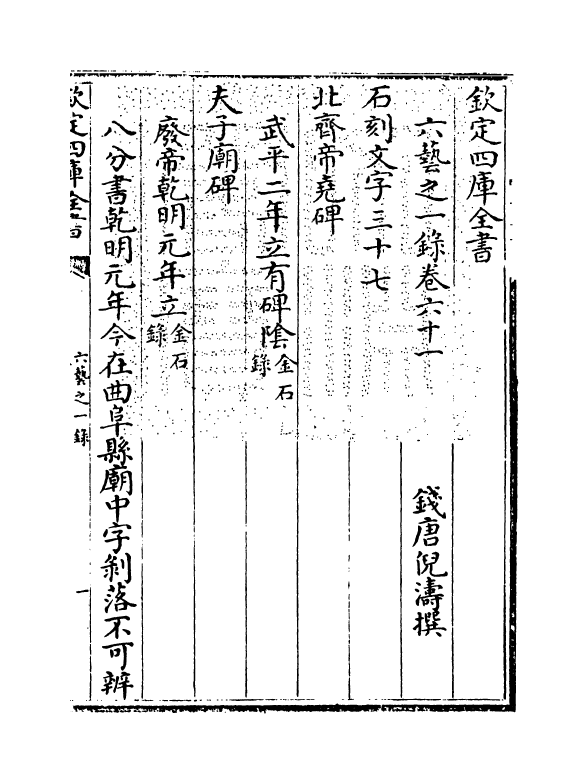 欽定四庫全書
六藝之一錄卷六十一
錢唐倪濤撰
石刻文字三十七
北齊帝堯碑
武平二年立有碑陰金石錄
夫子廟碑
廢帝乾明元年立金石錄
八分書乾明元年今在曲阜縣廟中字剝落不可辨
欽定四庫全書
六藝之一錄
一